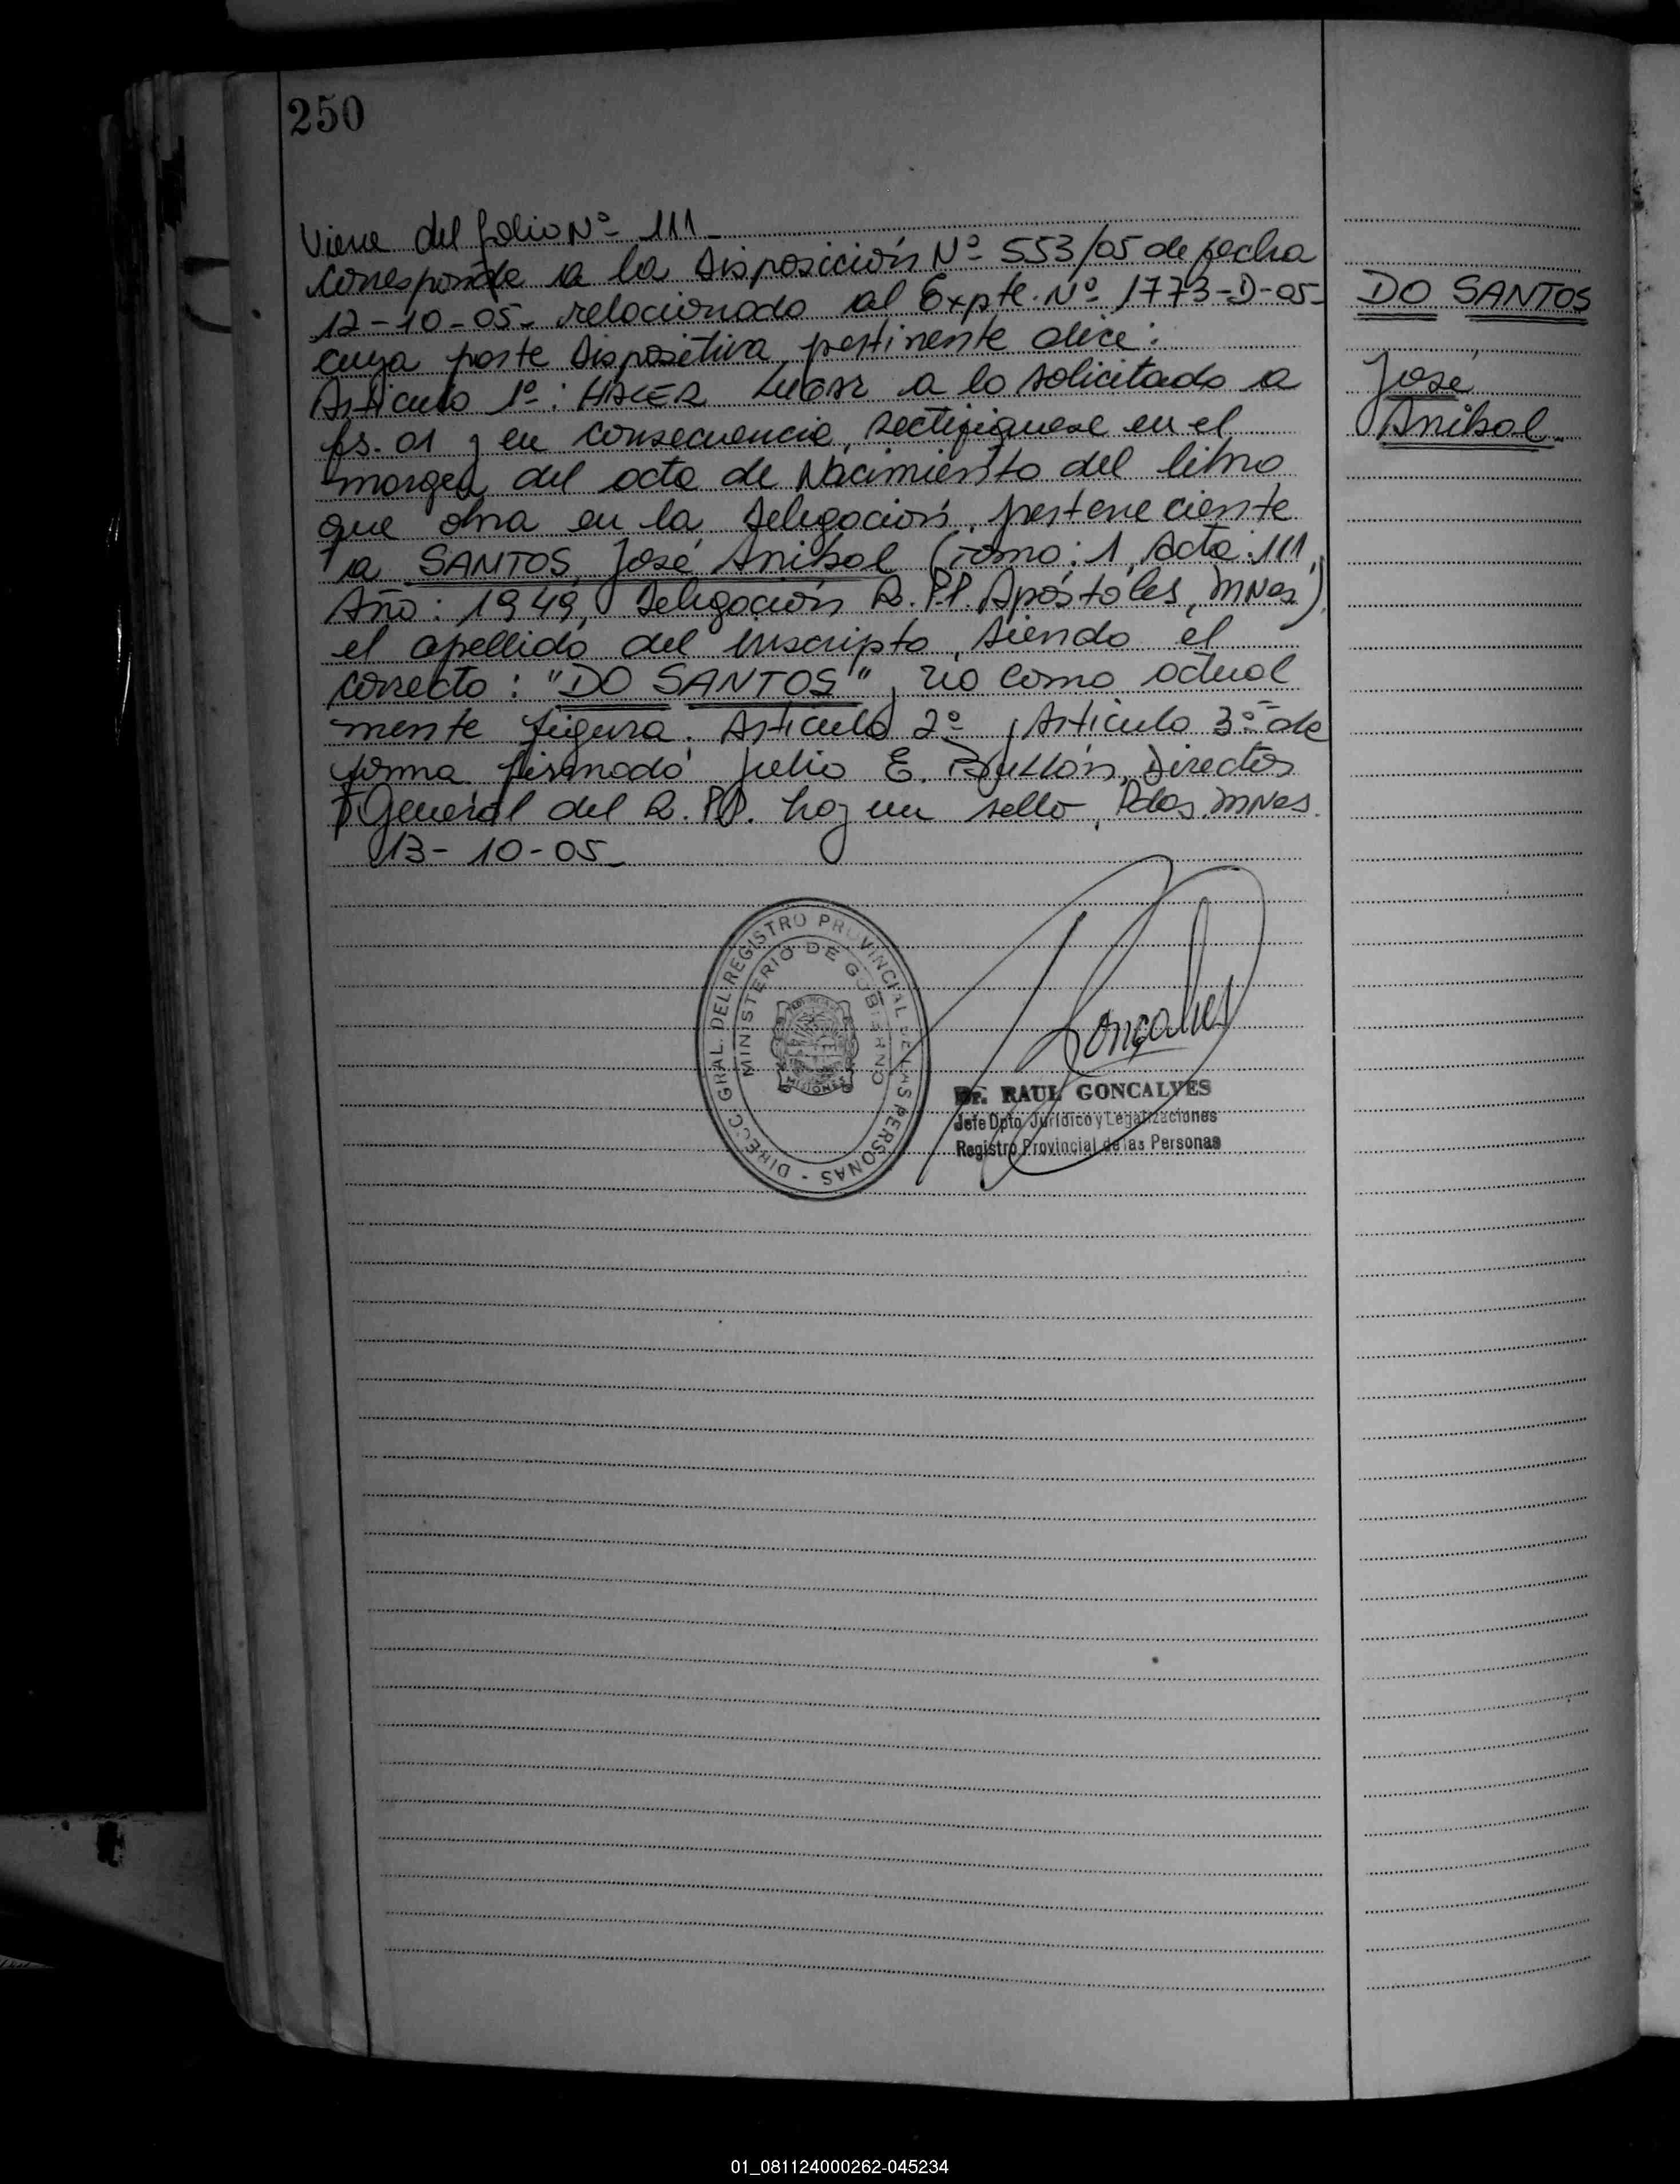 250
Viene del folio Nº 111-
Corresponde a la Disposición Nº 553/05 de fecha
12-10-05- relacionado al Expte. Nº 1773-D-05-
cuya parte Dispositiva pertinente dice:
Artículo 1º: HACER LUGAR a lo solicitado a
fs. 01 y en consecuencia, rectifíquese en el
margen del acta de Nacimiento del libro
que obra en la Delegación, perteneciente
a SANTOS, José Anibal (Tomo: 1, Acta: 111,
Año: 1949, Delegación R.P.P. Apóstoles, Mnes)
el apellido del inscripto, siendo el
correcto: "DO SANTOS", no como actual
mente figura. Artículo 2º, Artículo 3º de
forma firmado Julio E. Director
General del R.P.P. hay un sello, Pdas. Mnes.
13-10-05-
DO SANTOS
José
Anibal-
DIRECC GRAL. DEL REGISTRO PROVINCIAL DE LAS PERSONAS -
MINISTERIO DE GOBIERNO
MISIONES
Goncalves
Dr. RAUL GONCALVES
Jefe Dpto Jurídico y Legalizaciones
Registro Provincial de las Personas
01_081124000262-045234